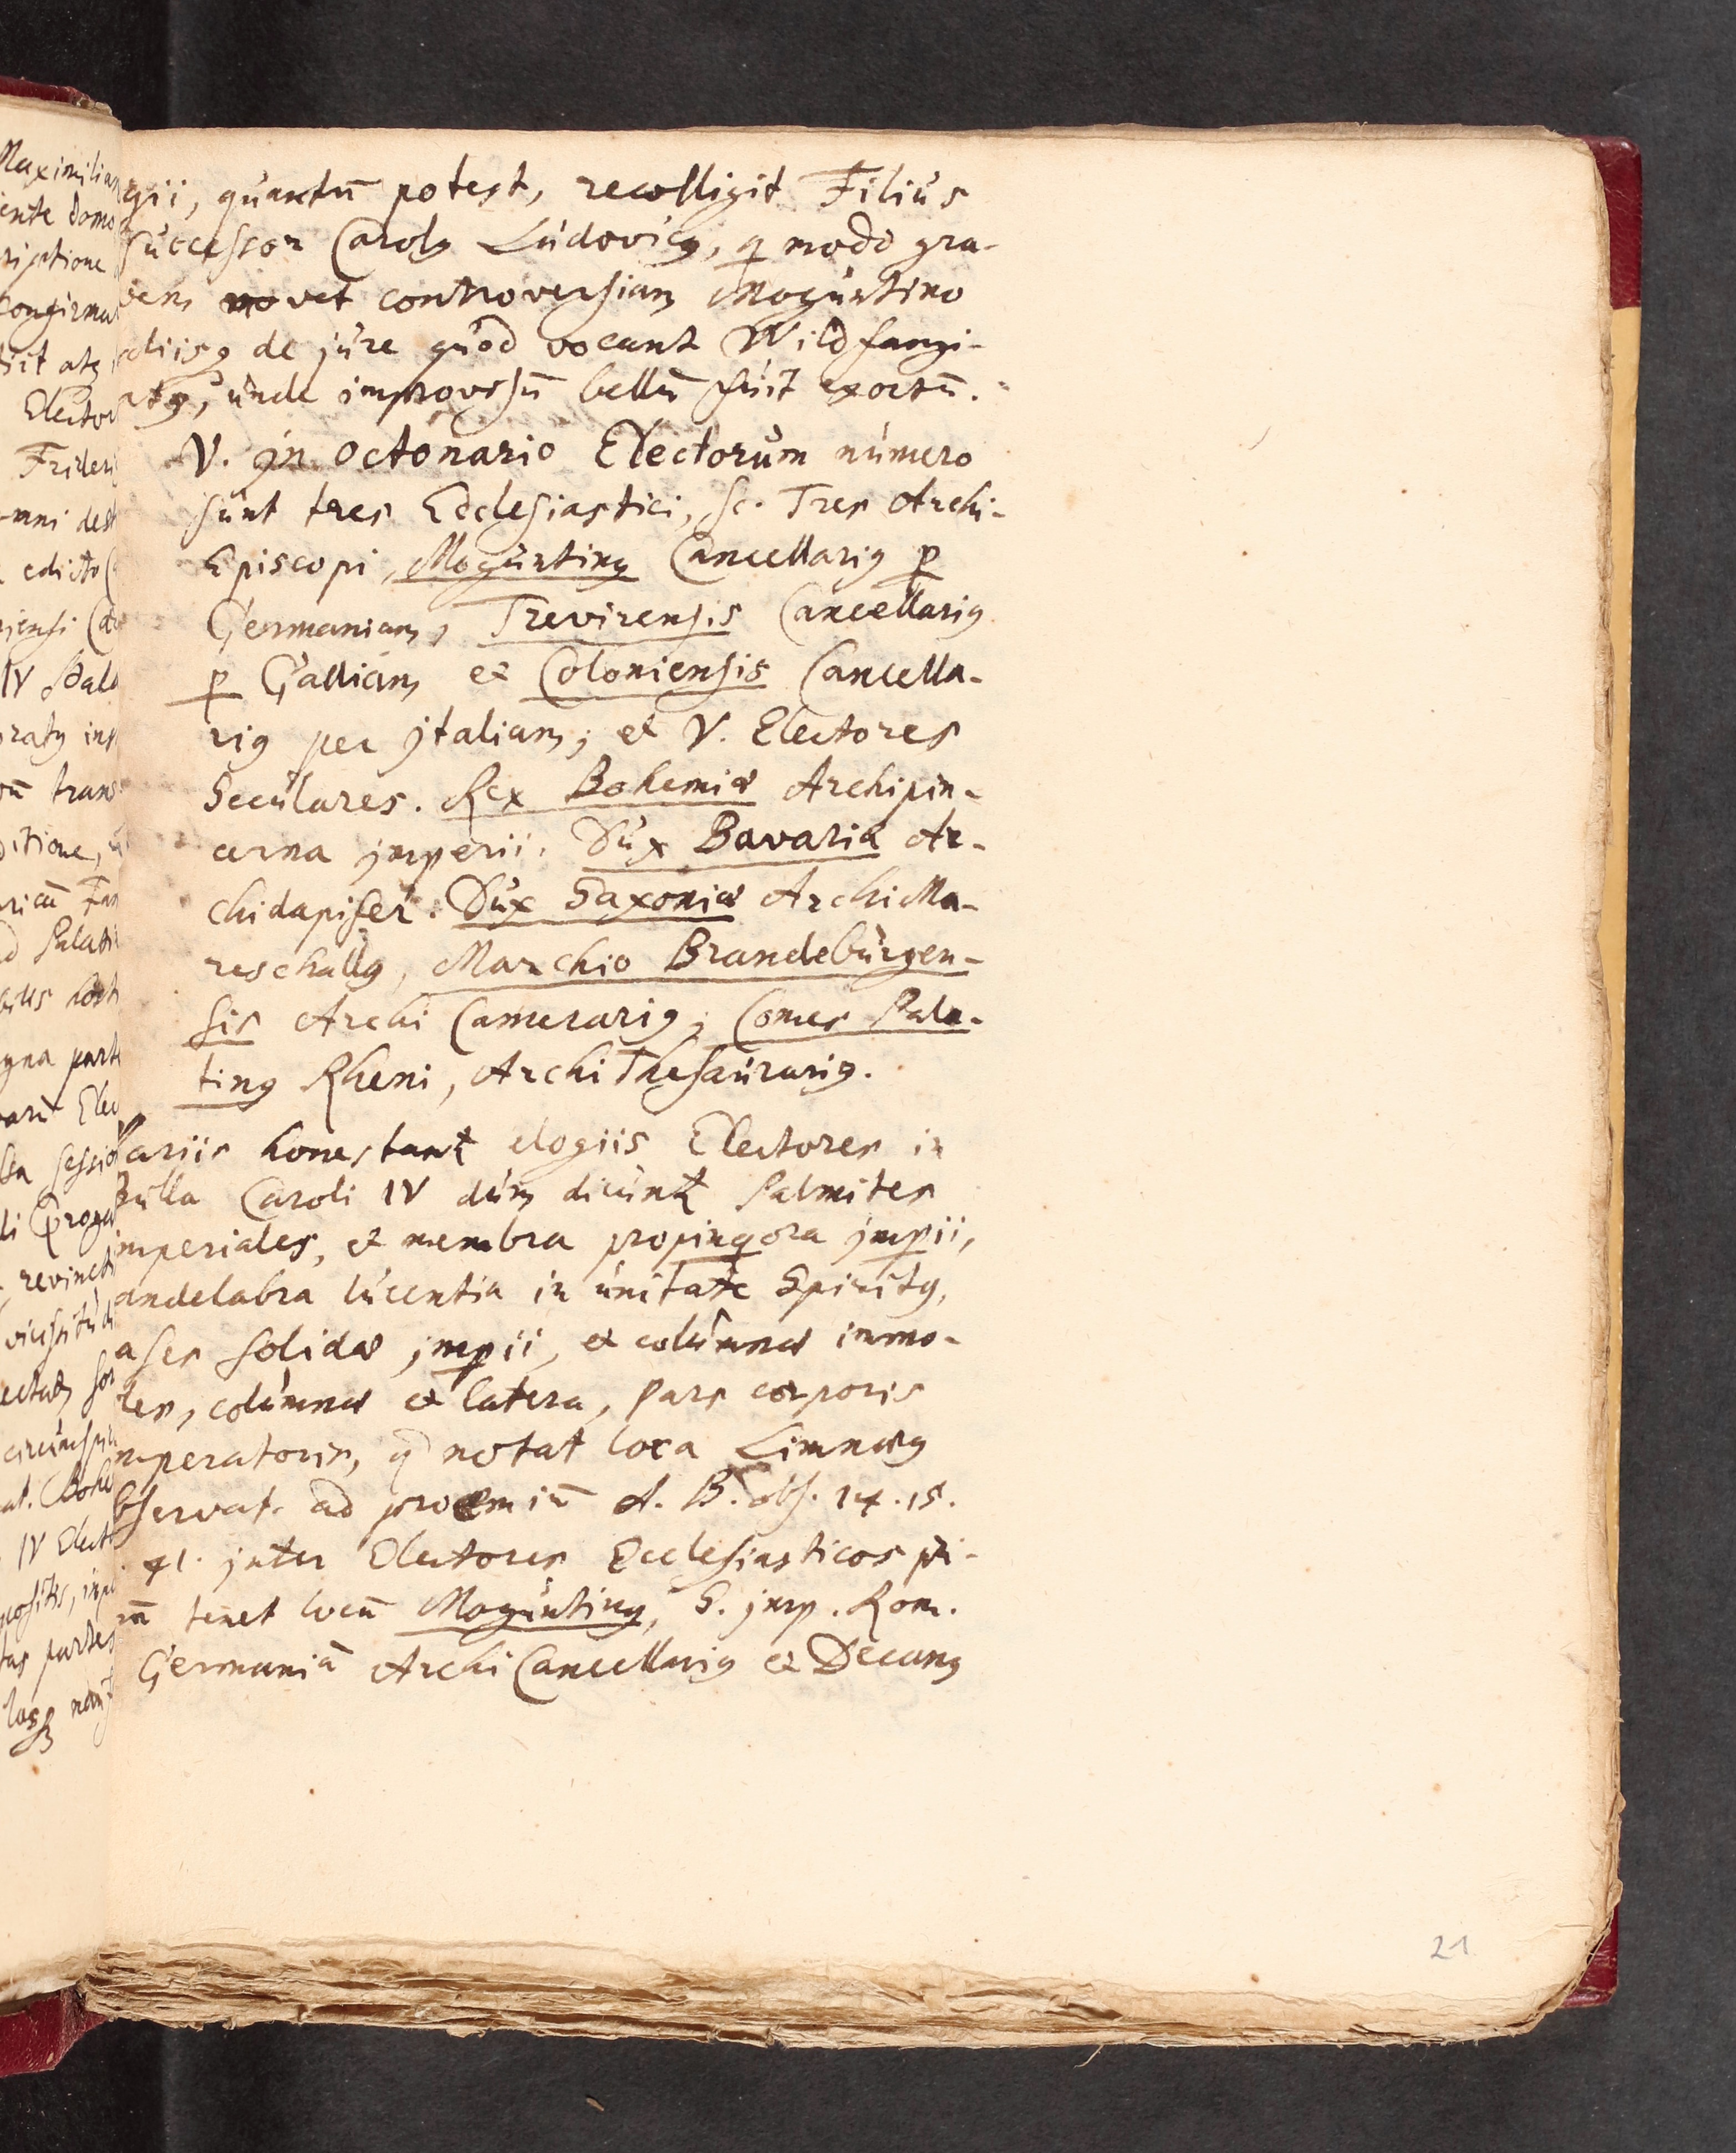 Maximilian
ente domo
riptione
Elector
Frideri
mni dest
edicto
IV
trans
Palati
gna part
IV Elect
partes
gii, quantū potest, recolligit Filius
Successor Caroly Ludovicy, q modo gra-
vem movet controversiam Moguntino
aliisq de jure quod vocant Wildfangi-
aty, unde improvisū bellū fuit exortū.
V. Jn Octonario Electorum numero
sunt tres Ecclesiastici, sc. Tres Archi-
Episcopi, Moguntiny Cancellariy p
Germaniam, Trevirensis Cancellariy
p Galliam et Coloniensis Cancella-
riy per Jtaliam; et V. Electores
Seculares. Rex Bohemiæ Archipin-
cerna jmperii. Dux Bavariæ Ar-
chidapifer. Dux Saxoniæ ArchiMa-
reschally, Marchio Brandeburgen-
sis Archi Camerariy; Comes Pala-
tiny Rheni, ArchiThesaurariy.
Variis honestant elogiis Electores in
Bulla Caroli IV dum dicunt Palmites
imperiales, et membra propinqora jmpii,
andelabra lucentia in unitate Spirity,
ases solidæ jmpii, et columnæ immo-
les, columnæ et latera, pars corporis
mperatoris, q notat loca Limnæy
bservat. ad proœmiū A. B. obs. 14. 15.
41. jnter Electores Ecclesiasticos pri-
m̄ tenet locū Moguntiny, S. jmp. Rom.
Germaniā Archi Cancellariy et Decany
21